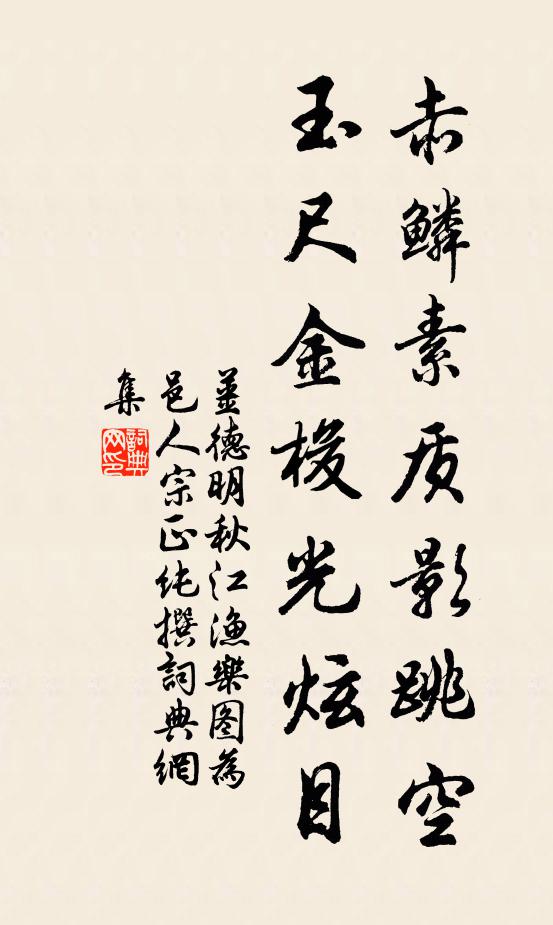 赤鳞素质影跳空
玉尺金梭光炫目
姜德明秋江渔乐图为
邑人宗正纯撰詞典網
集
詞典
网印